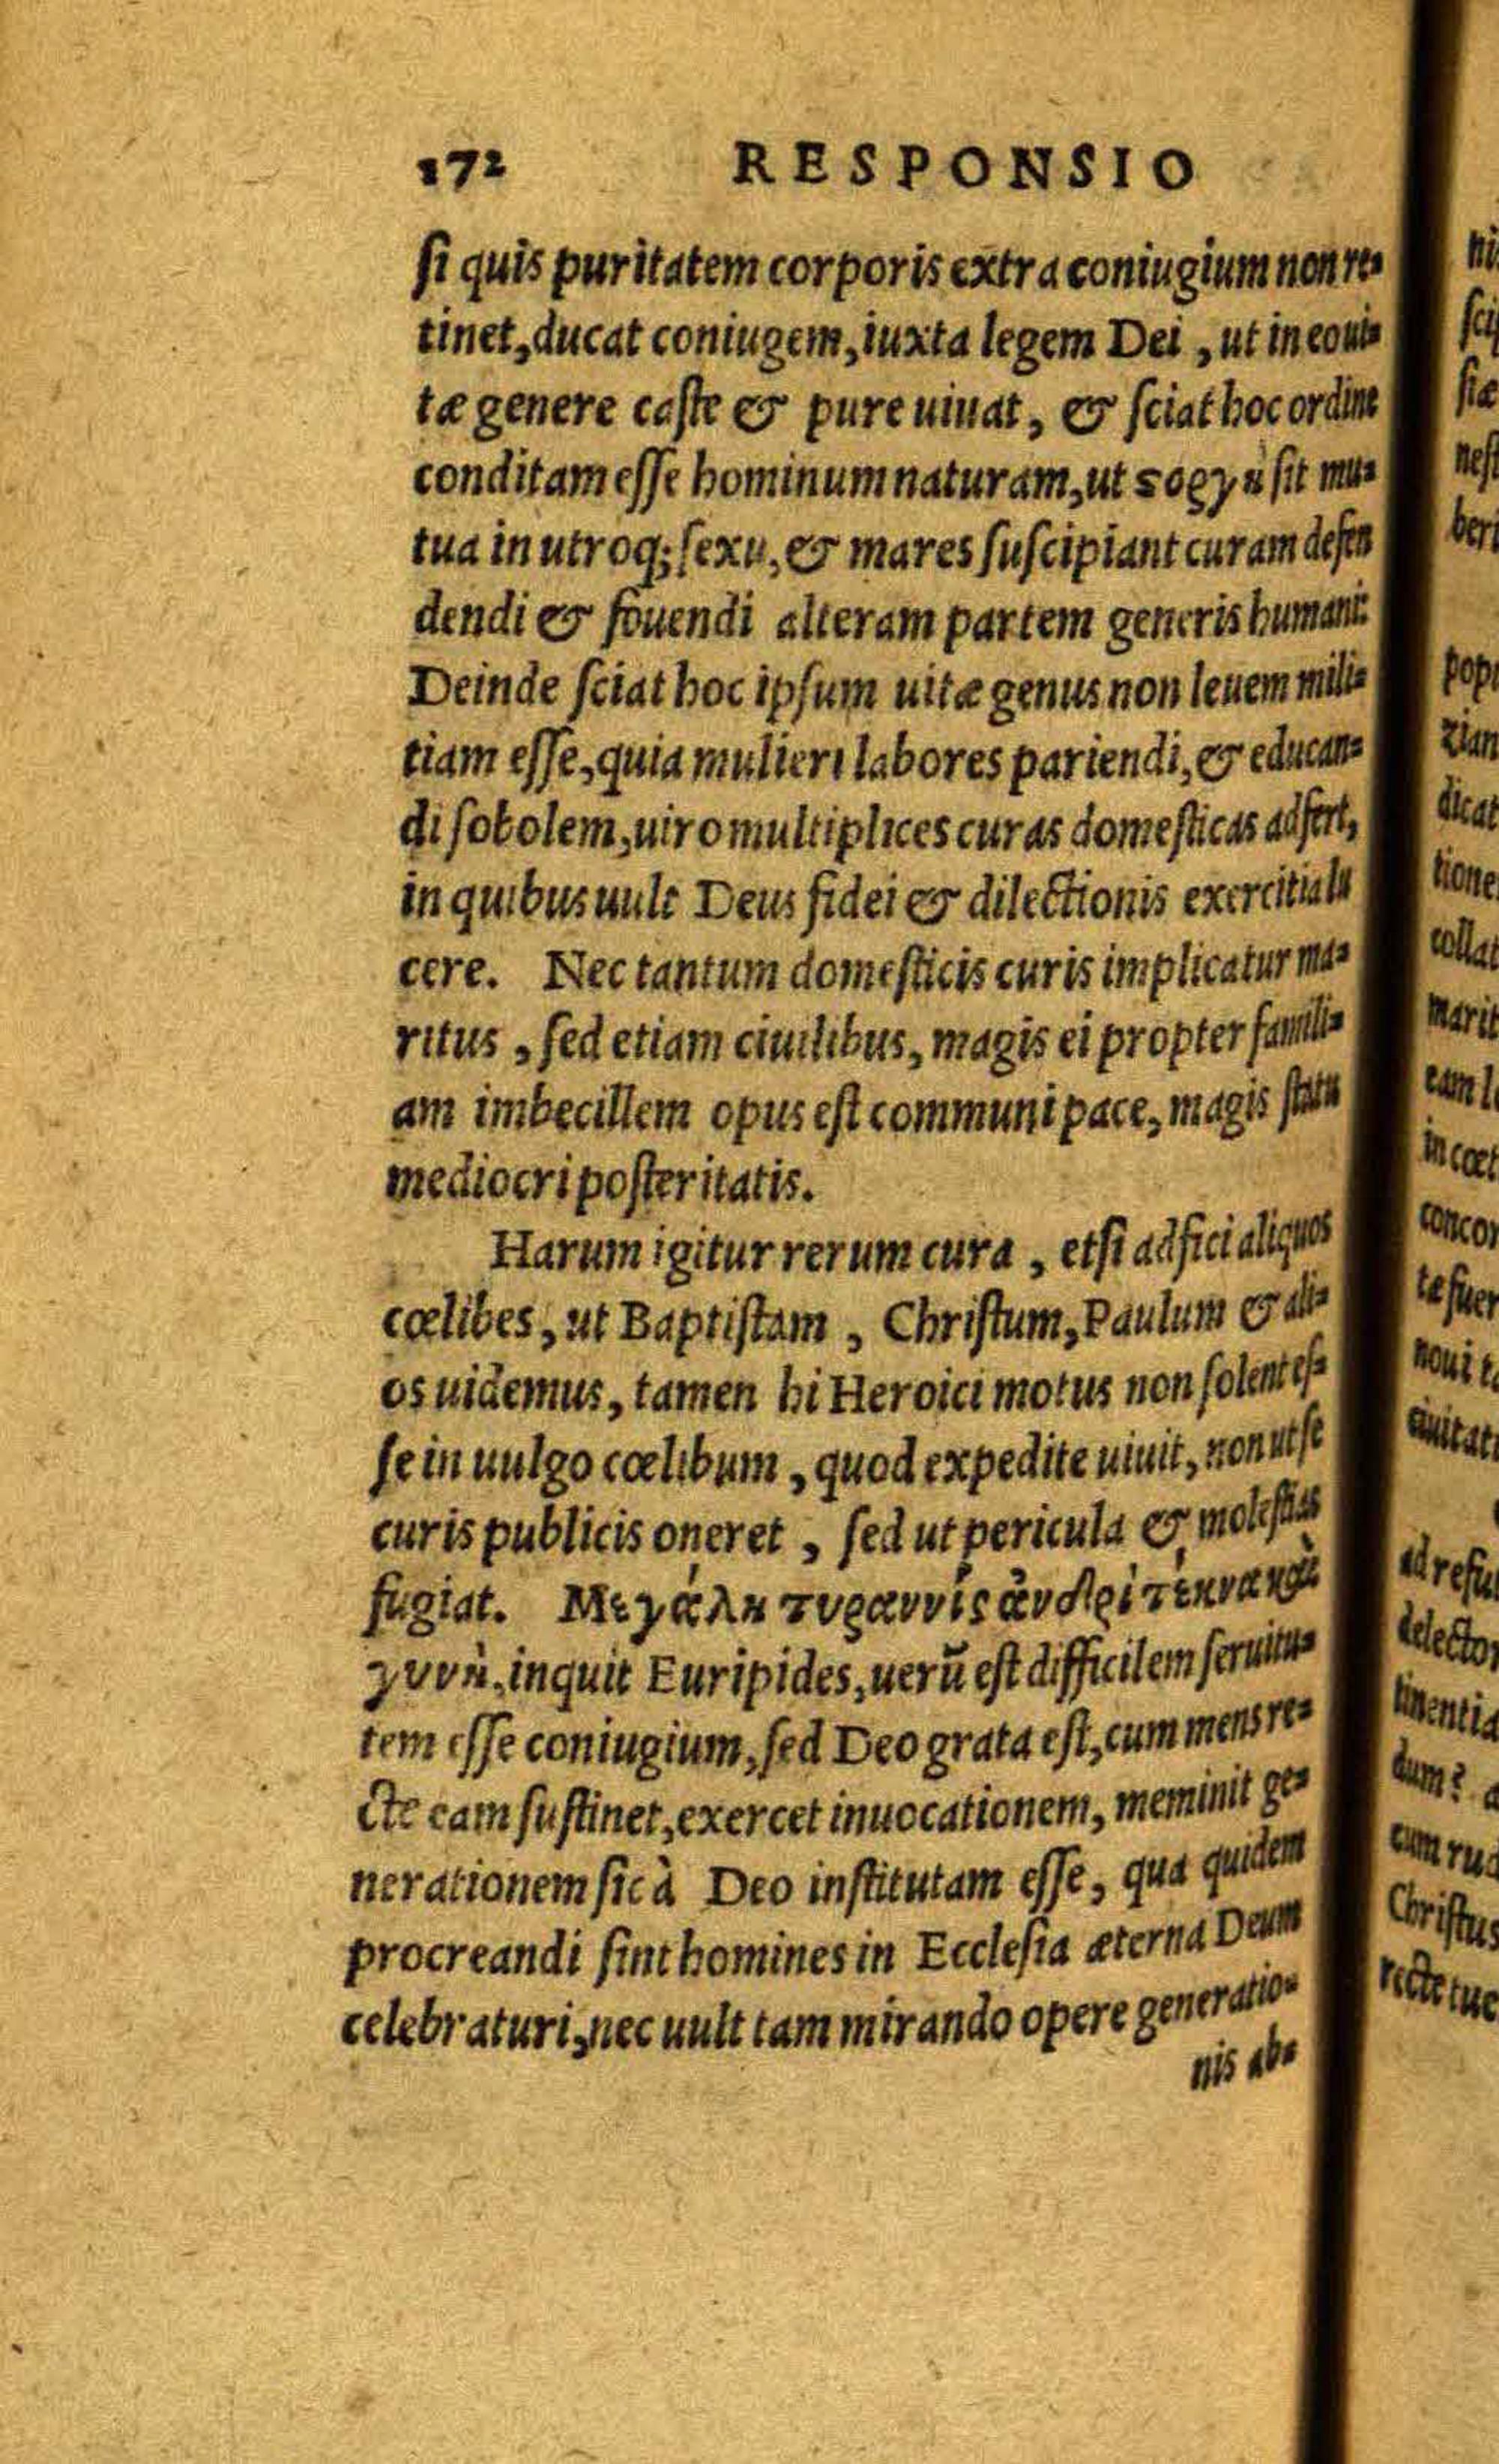 172 RESPONSIO
si quis puritatem corporis extra coniugium non re-
tinet, ducat coniugem, iuxta legem Dei, ut in eo ui-
tæ genere caste & pure uiuat, & sciat hoc ordine
conditam esse hominum naturam, ut ςοργὴ sit mu-
tua in utroq; sexu, & mares suscipiant curam defen
dendi & fouendi alteram partem generis humani:
Deinde sciat hoc ipsum uitæ genus non leuem mili-
tiam esse, quia mulieri labores pariendi, & educan-
di sobolem, uiro multiplices curas domesticas adfert,
in quibus uult Deus fidei & dilectionis exercitia lu
cere. Nec tantum domesticis curis implicatur ma-
ritus, sed etiam ciuilibus, magis ei propter famili-
am imbecillem opus est communi pace, magis statu
mediocri posteritatis.
Harum igitur rerum cura, etsi adfici aliquos
cœlibes, ut Baptistam, Christum, Paulum & ali-
os uidemus, tamen hi Heroici motus non solent es-
se in uulgo cœlibum, quod expedite uiuit, non ut se
curis publicis oneret, sed ut pericula & molestias
fugiat. Μεγάλη τυραννίς ἀνδρὶ τέκνα καὶ
γυνὴ, inquit Euripides, uerũ est difficilem seruitu-
tem esse coniugium, sed Deo grata est, cum mens re-
cte eam sustinet, exercet inuocationem, meminit ge-
nerationem sic à Deo institutam esse, qua quidem
procreandi sint homines in Ecclesia æterna Deum
celebraturi, nec uult tam mirando opere generatio-
nis ab-
ni
sci
siæ
nest
beri
popu
zian
dicat
tione
collat
marit
eam l
in cœt
concor
tæ fuer
noui t
ciuitati
ad refu
delector
tinentia
dum? a
cum rud
Christus
recte tue